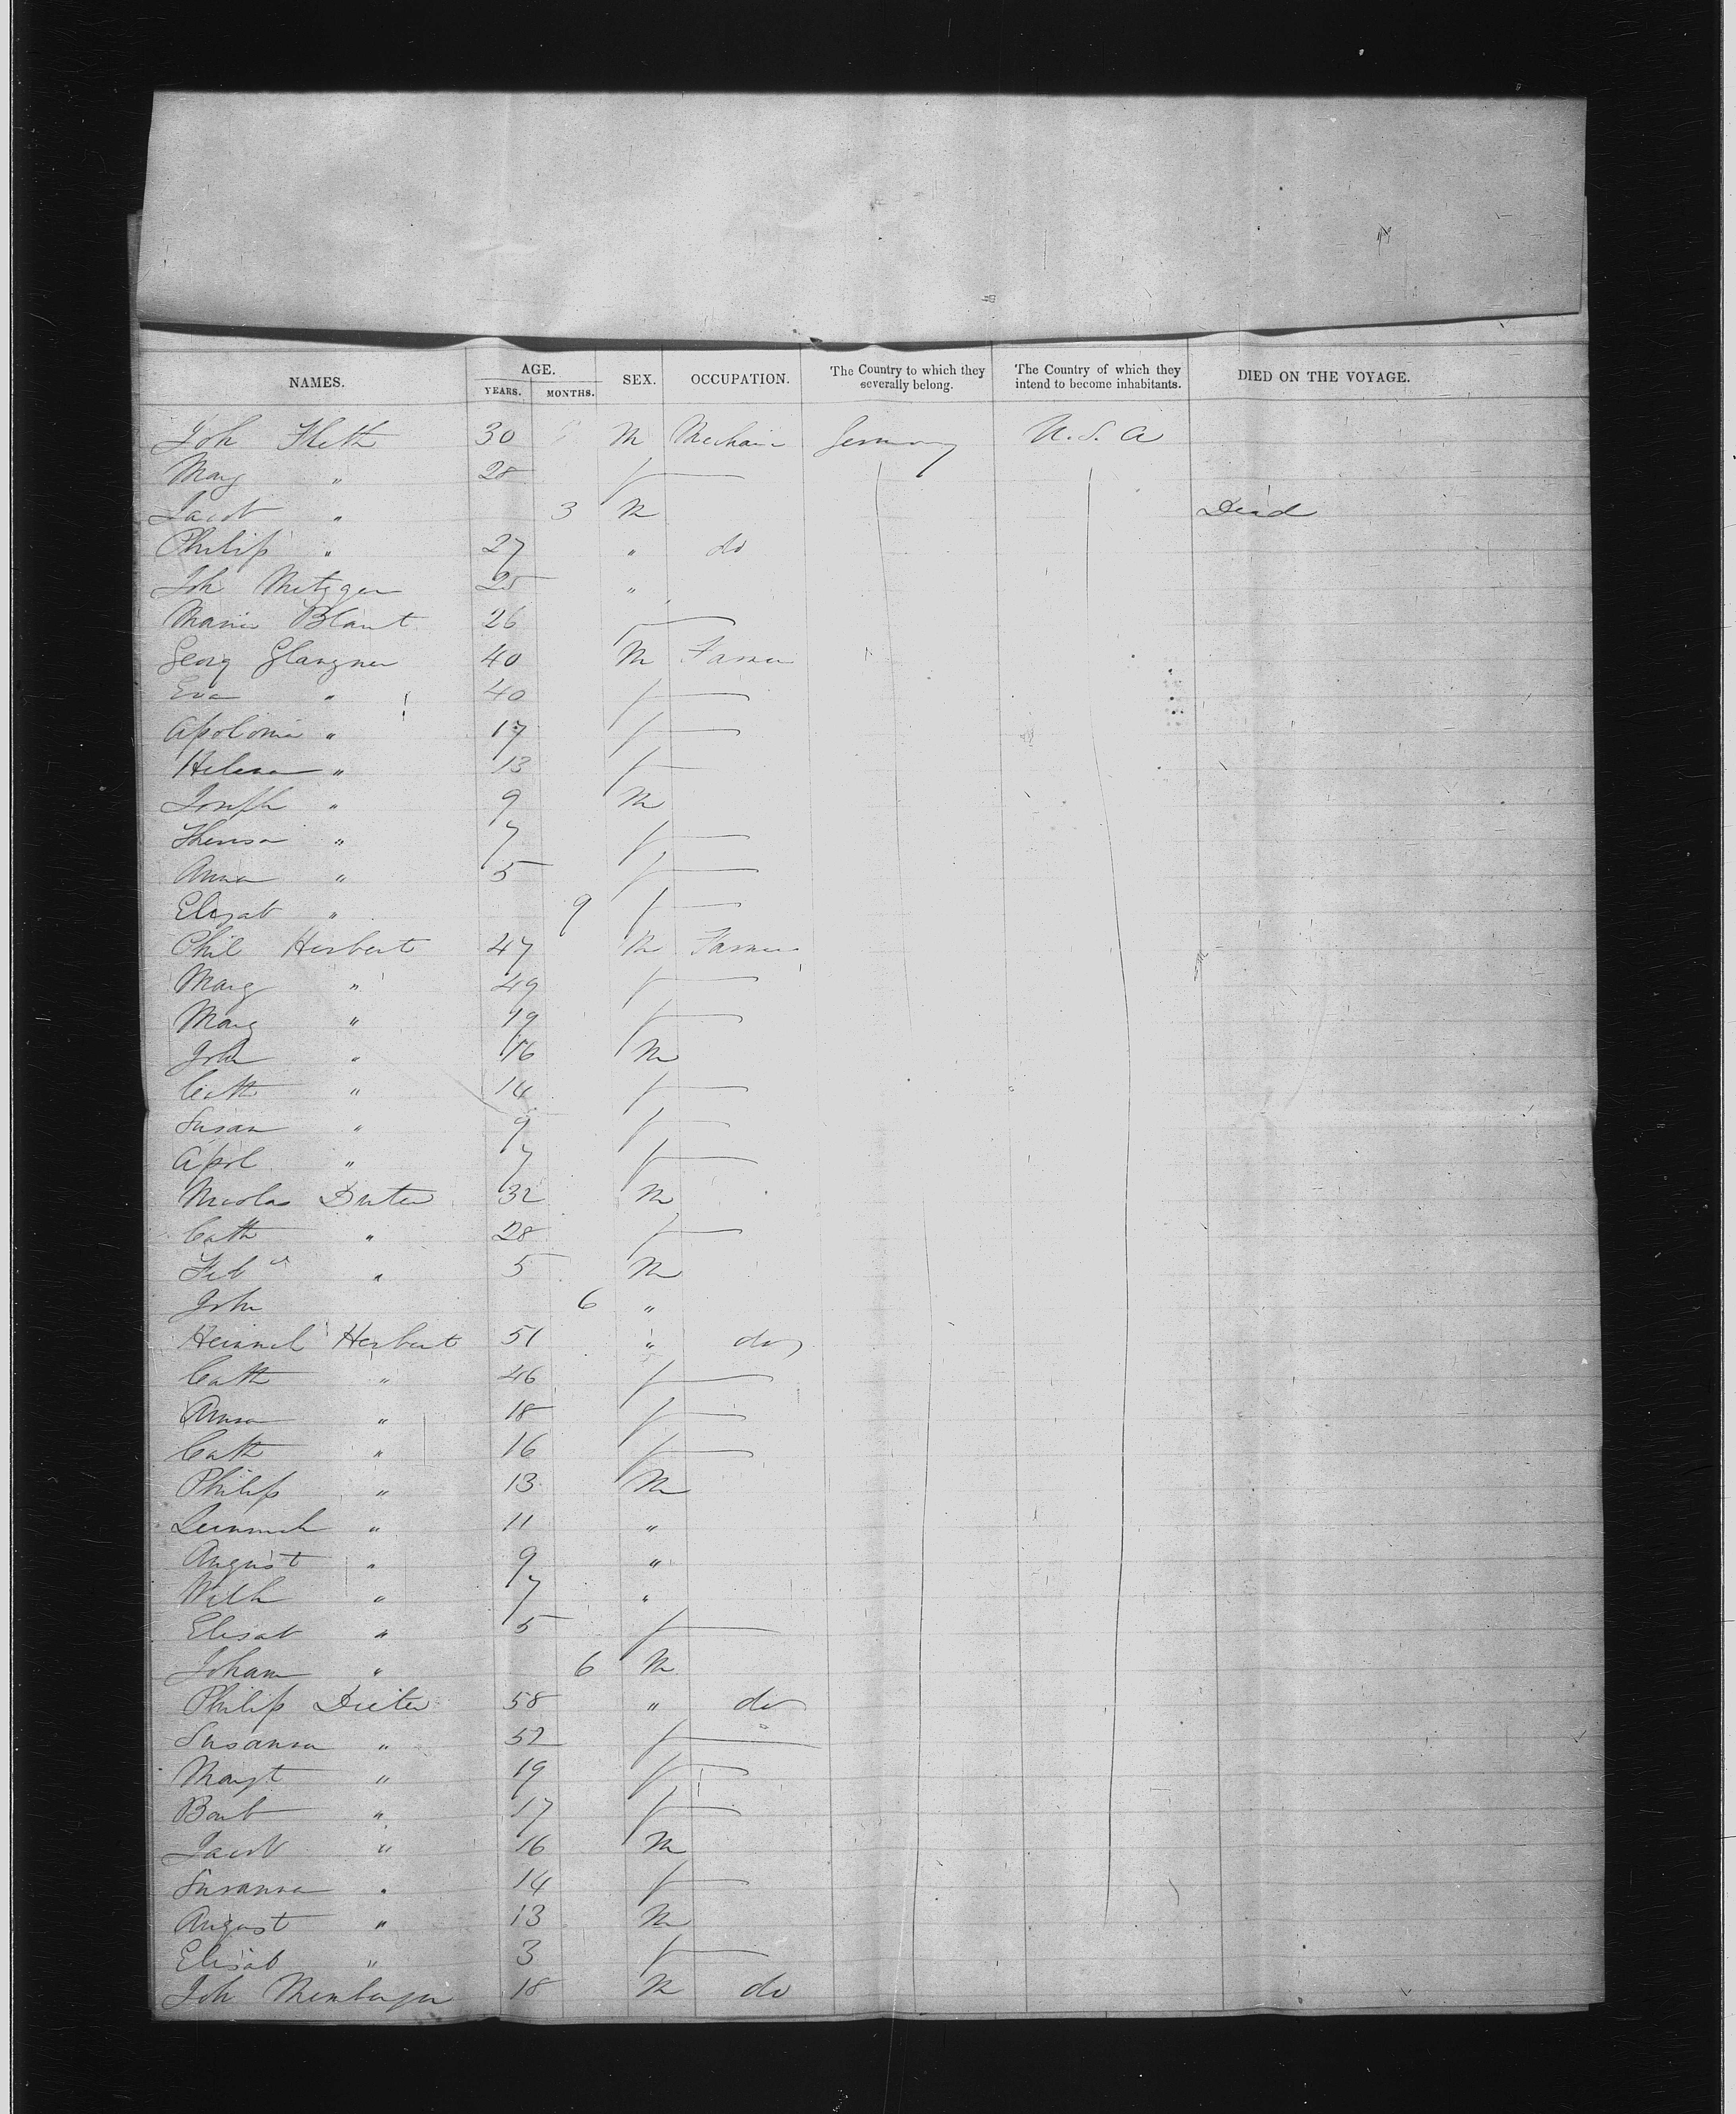 NAMES. AGE. YEARS. MONTHS. SEX. OCCUPATION. The Country to which they severally belong. The Country of which they intend to become inhabitants. DIED ON THE VOYAGE.
Joh 30 M Mechanic Germany U. S. A
Marg " 28 f
Jacob " 3 M Died
Philip " 27 " do
Joh Metzger 25 "
Maria Blant 26 f
Georg Glanzner 40 M Farmer
Eva " 40 f
Apolonia " 17 f
Helena " 13 f
Joseph " 9 M
Theresa " 7 f
Anna " 5 f
Elizab " 9 f
Phil Herbert 47 M Farmer
Marg " 49 f
Marg " 19 f
John " 16 M
Cath " 14 f
Susan " 9 f
Apol " 7 f
Nicolas Dieter 32 M
Cath " 28 f
" 5 M
John 6 "
Heinrich Herbert 51 " do
Cath " 46 f
Anna " 18 f
Cath " 16 f
Philip " 13 M
" 11 "
August " 9 "
Wilh " 7 "
Elisab " 5 f
Johann " 6 M
Philip Dieter 58 " do
Susanna " 52 f
Margt " 19 f
Barb " 17 f
Jacob " 16 M
Susanna " 14 f
August " 13 M
Elisab " 3 f
Joh 18 M do